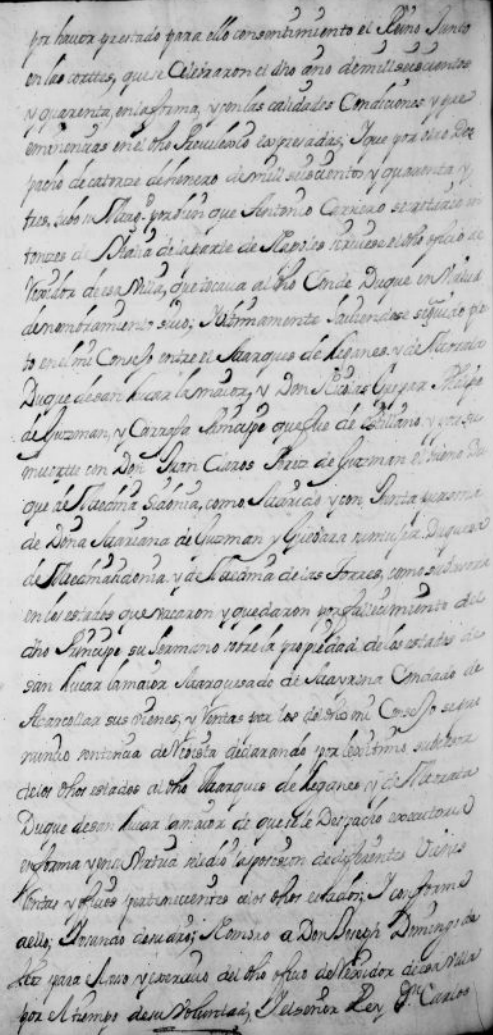 por haver prestado para ello consentimiento el Reino Junto
en las cortes, que se Celebraron el dho año de mill seiscientos
y quarenta, en la forma, y con las calidades Condiciones y pree
eminencias en el dho Previlexio expresadas; Y que por otro Des
pacho de catorze de henero de mill seiscientos y quarenta y
tres, tubo su Magd. por bien que Antonio Carrero secretario en
tonzes de Italia de la parte de Napoles sirviese el dho oficio de
Rexidor de esa Villa, que tocava al dho Conde Duque en Virtud
de nombramiento suio; Y ultimamente haviendose seguido plei
to en el mi Consejo entre el Marques de Leganes y de Morata
Duque de san lucar la maior, y Don Nicolas Gaspar Phelipe
de Guzman, y Carrafa Principe que fue de Estillano y por su
muerte con Don Juan Claros Perez de Guzman el bueno Du
que de Medina Sidonia, como Marido y con Junta persona
de Doña Mariana de Guzman y Guevara su muger Duquesa
de Medina sidonia y de Medina de las Torres, como subcesora
en los estados que vacaron y quedaron por fallecimiento del
dho Principe su hermano sobre la propiedad de los estados de
san lucar la maior Marquesado de Mayrena Condado de
Azarcollar sus vienes, y Rentas por los del dho mi Consejo se pro
nuncio sentencia de Revista declarando por lexitimo subcesor
de los dhos estados al dho Marques de Leganes y de Morata
Duque de san lucar la maior de que se le Despacho executoria
en forma y en su Virtud se le dio la posesion de diferentes Vienes
Rentas y oficios pertenecientes a los dhos estados; Y conforme
a ello; Usando de su dro; Nombro a Don Joseph Domingo de
para el uso y exercicio del dho oficio de Rexidor de esa Villa
por el tiempo de su Voluntad, Y el señor Rey Dn. Carlos